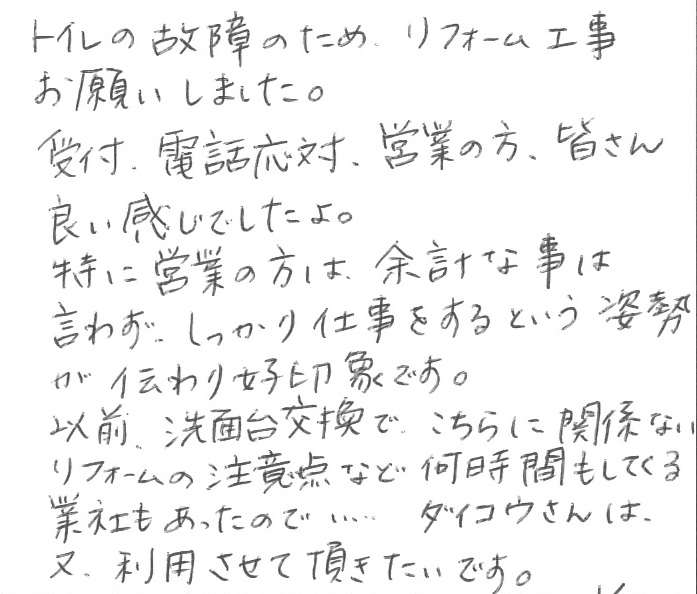 トイレの故障のため、リフォーム工事
お願いしました。
受付、電話応対、営業の方、皆さん
良い感じでしたよ。
特に営業の方は、余計な事は
言わず、しっかり仕事をするという姿勢
が伝わり好印象です。
以前、洗面台交換で、こちらに関係ない
リフォームの注意点など何時間もしてくる
業社もあったので……ダイコウさんは、
又、利用させて頂きたいです。